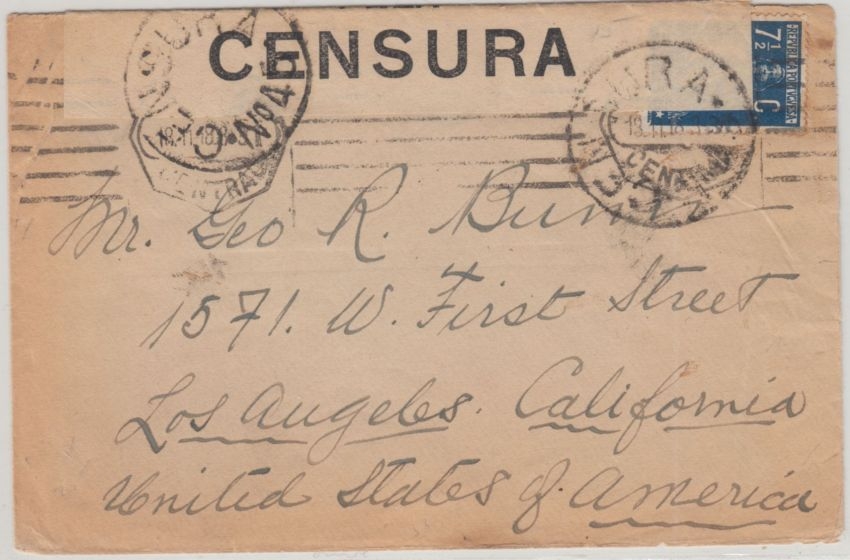 CENSURA
CENSURA
Nº 4
18.11.18
CENTRAL
REPUBLICA PORTUGUESA
7½ C
CENTRAL
Mr. Geo R.
1571. W. First Street
Los Angeles. California
United States of America